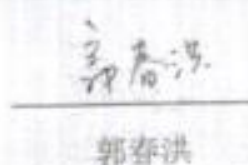 郭春洪
郭春洪